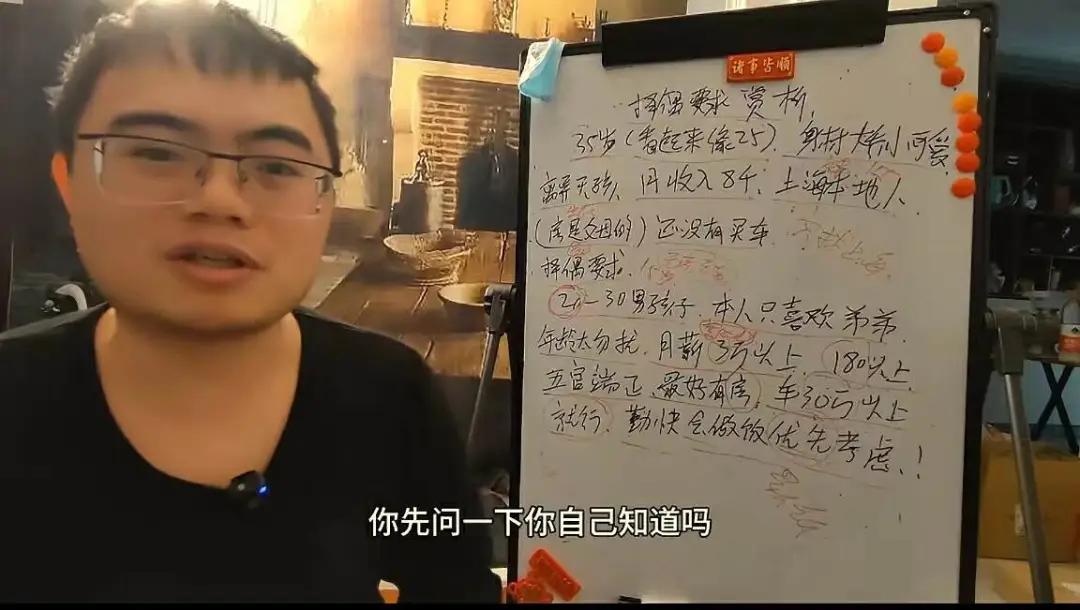 诸事皆順
择偶要求赏析
35岁(看起来像25)、身材娇小可爱
离异无孩、月收入8千、上海本地人
(房是父母的)还没有买车
择偶要求、
21-30男孩子、本人只喜欢弟弟
年龄大勿扰、月薪3万以上、180以上
五官端正、最好有房、车30万以上
就行、勤快会做饭优先考虑、!
你先问一下你自己知道吗